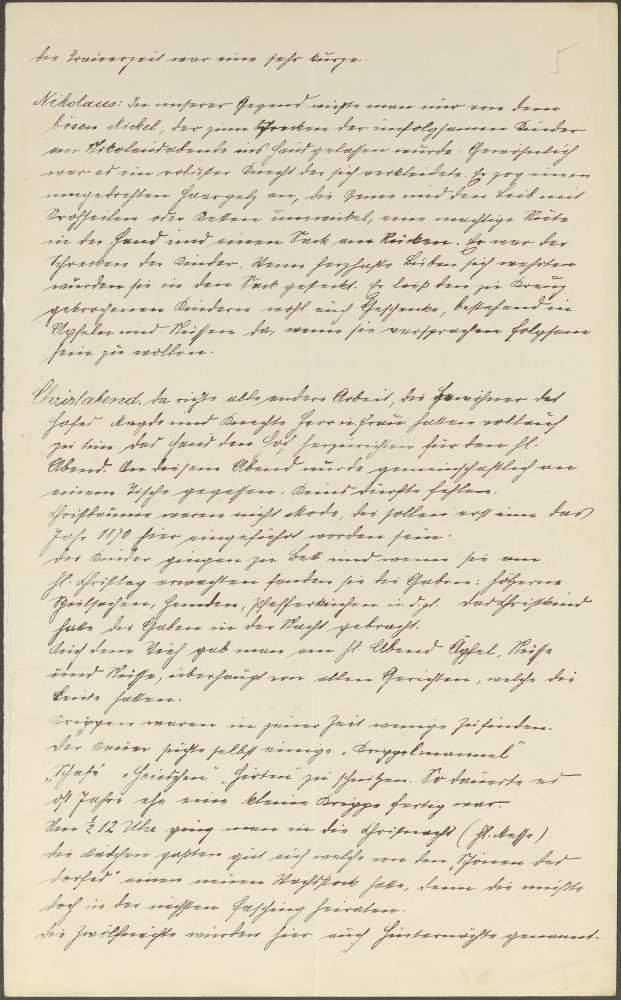 die Trauerzeit war eine sehr kurze.
5
Nikolaus: In unserer Gegend wußte man nur von dem
bösen Nickel, der zum Schrecken der unfolgsamen Kinder
am Nikolausabende ins Haus gelassen wurde. Gewöhnlich
war es ein robuster Knecht der sich verkleidete. Er zog einen
umgedrehten Haarpelz an, die Beine und den Leib mit
Strohseilen oder Ketten umwickelt, eine mächtige Rute
in der Hand und einen Sack am Rücken. Er war der
Schrecken der Kinder. Wenn herzhafte Buben sich wehrten
wurden sie in den Sack gesteckt. Er ließ den zu Kreuz
gekrochenen Kindern wohl auch Geschenke, bestehend in
Äpfeln und Nüssen da, wenn sie versprachen folgsam
sein zu wollen.
Christabend. da ruhte alle andere Arbeit, die Bewohner des
Hofes Magde und Knechte Herr u. Frau hatten vollauf
zu tun das Haus den Hof herzurichten für den hl.
Abend. An diesem Abend wurde gemeinschaftlich an
einem Tische gegessen. Keins durfte fehlen.
Christbäume waren nicht Mode, die sollen erst um das
Jahr 1870 hier eingeführt worden sein.
Die Kinder gingen zu Bett und wenn sie am
hl. Christtag erwachten fanden sie die Gaben: hölzerne
Spielsachen, Hemden, Pfefferkuchen u. d. gl. das Christkind
hatte die Gaben in der Nacht gebracht.
Auch dem Vieh gab man am hl. Abend Äpfel, Nüsse
und Nüsse, überhaupt von allen Gerichten, welche die
Leute hatten.
Krippen waren in jener Zeit wenige zu finden.
Der Bauer suchte selbst einige „Krippelmannel"
„Schafe" „Häuschen" „Hirten" zu schnitzen. So dauerte es
oft Jahre ehe eine kleine Krippe fertig war.
Um ½ 12 Uhr ging man in die Christnacht (hl. Messe)
die Mädchen paßten gut auf welche von den Schönen des
Dorfes einen neuen Wachsstock hatte, denn die mußte
doch in der nächsten Fasching heiraten.
Die Zwölfnächte wurden hier auch Hinternächte genannt.